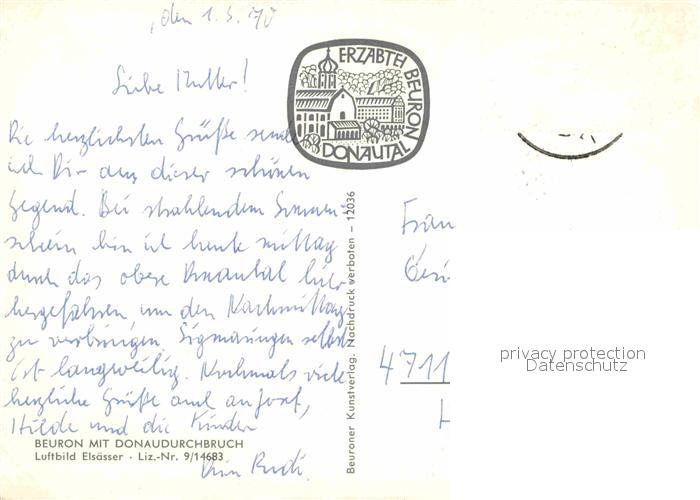 den 1.5.70
Liebe Mutter!
Die herzlichsten Grüße sende
ich Dir aus dieser schönen
Gegend. Bei strahlendem Sonnen-
schein bin ich heute mittag
durch das obere Donautal hier-
hergefahren um den Nachmittag
zu verbringen. Sigmaringen selbst
ist langweilig. Nochmals viele
herzliche Grüße auch an Josef,
Hilde und die Kinder
Dein Rudi.
BEURON MIT DONAUDURCHBRUCH
Luftbild Elsässer · Liz.-Nr. 9/14683
Beuroner Kunstverlag. Nachdruck verboten – 12036
ERZABTEI BEURON
DONAUTAL
Frau
4711
privacy protection
Datenschutz